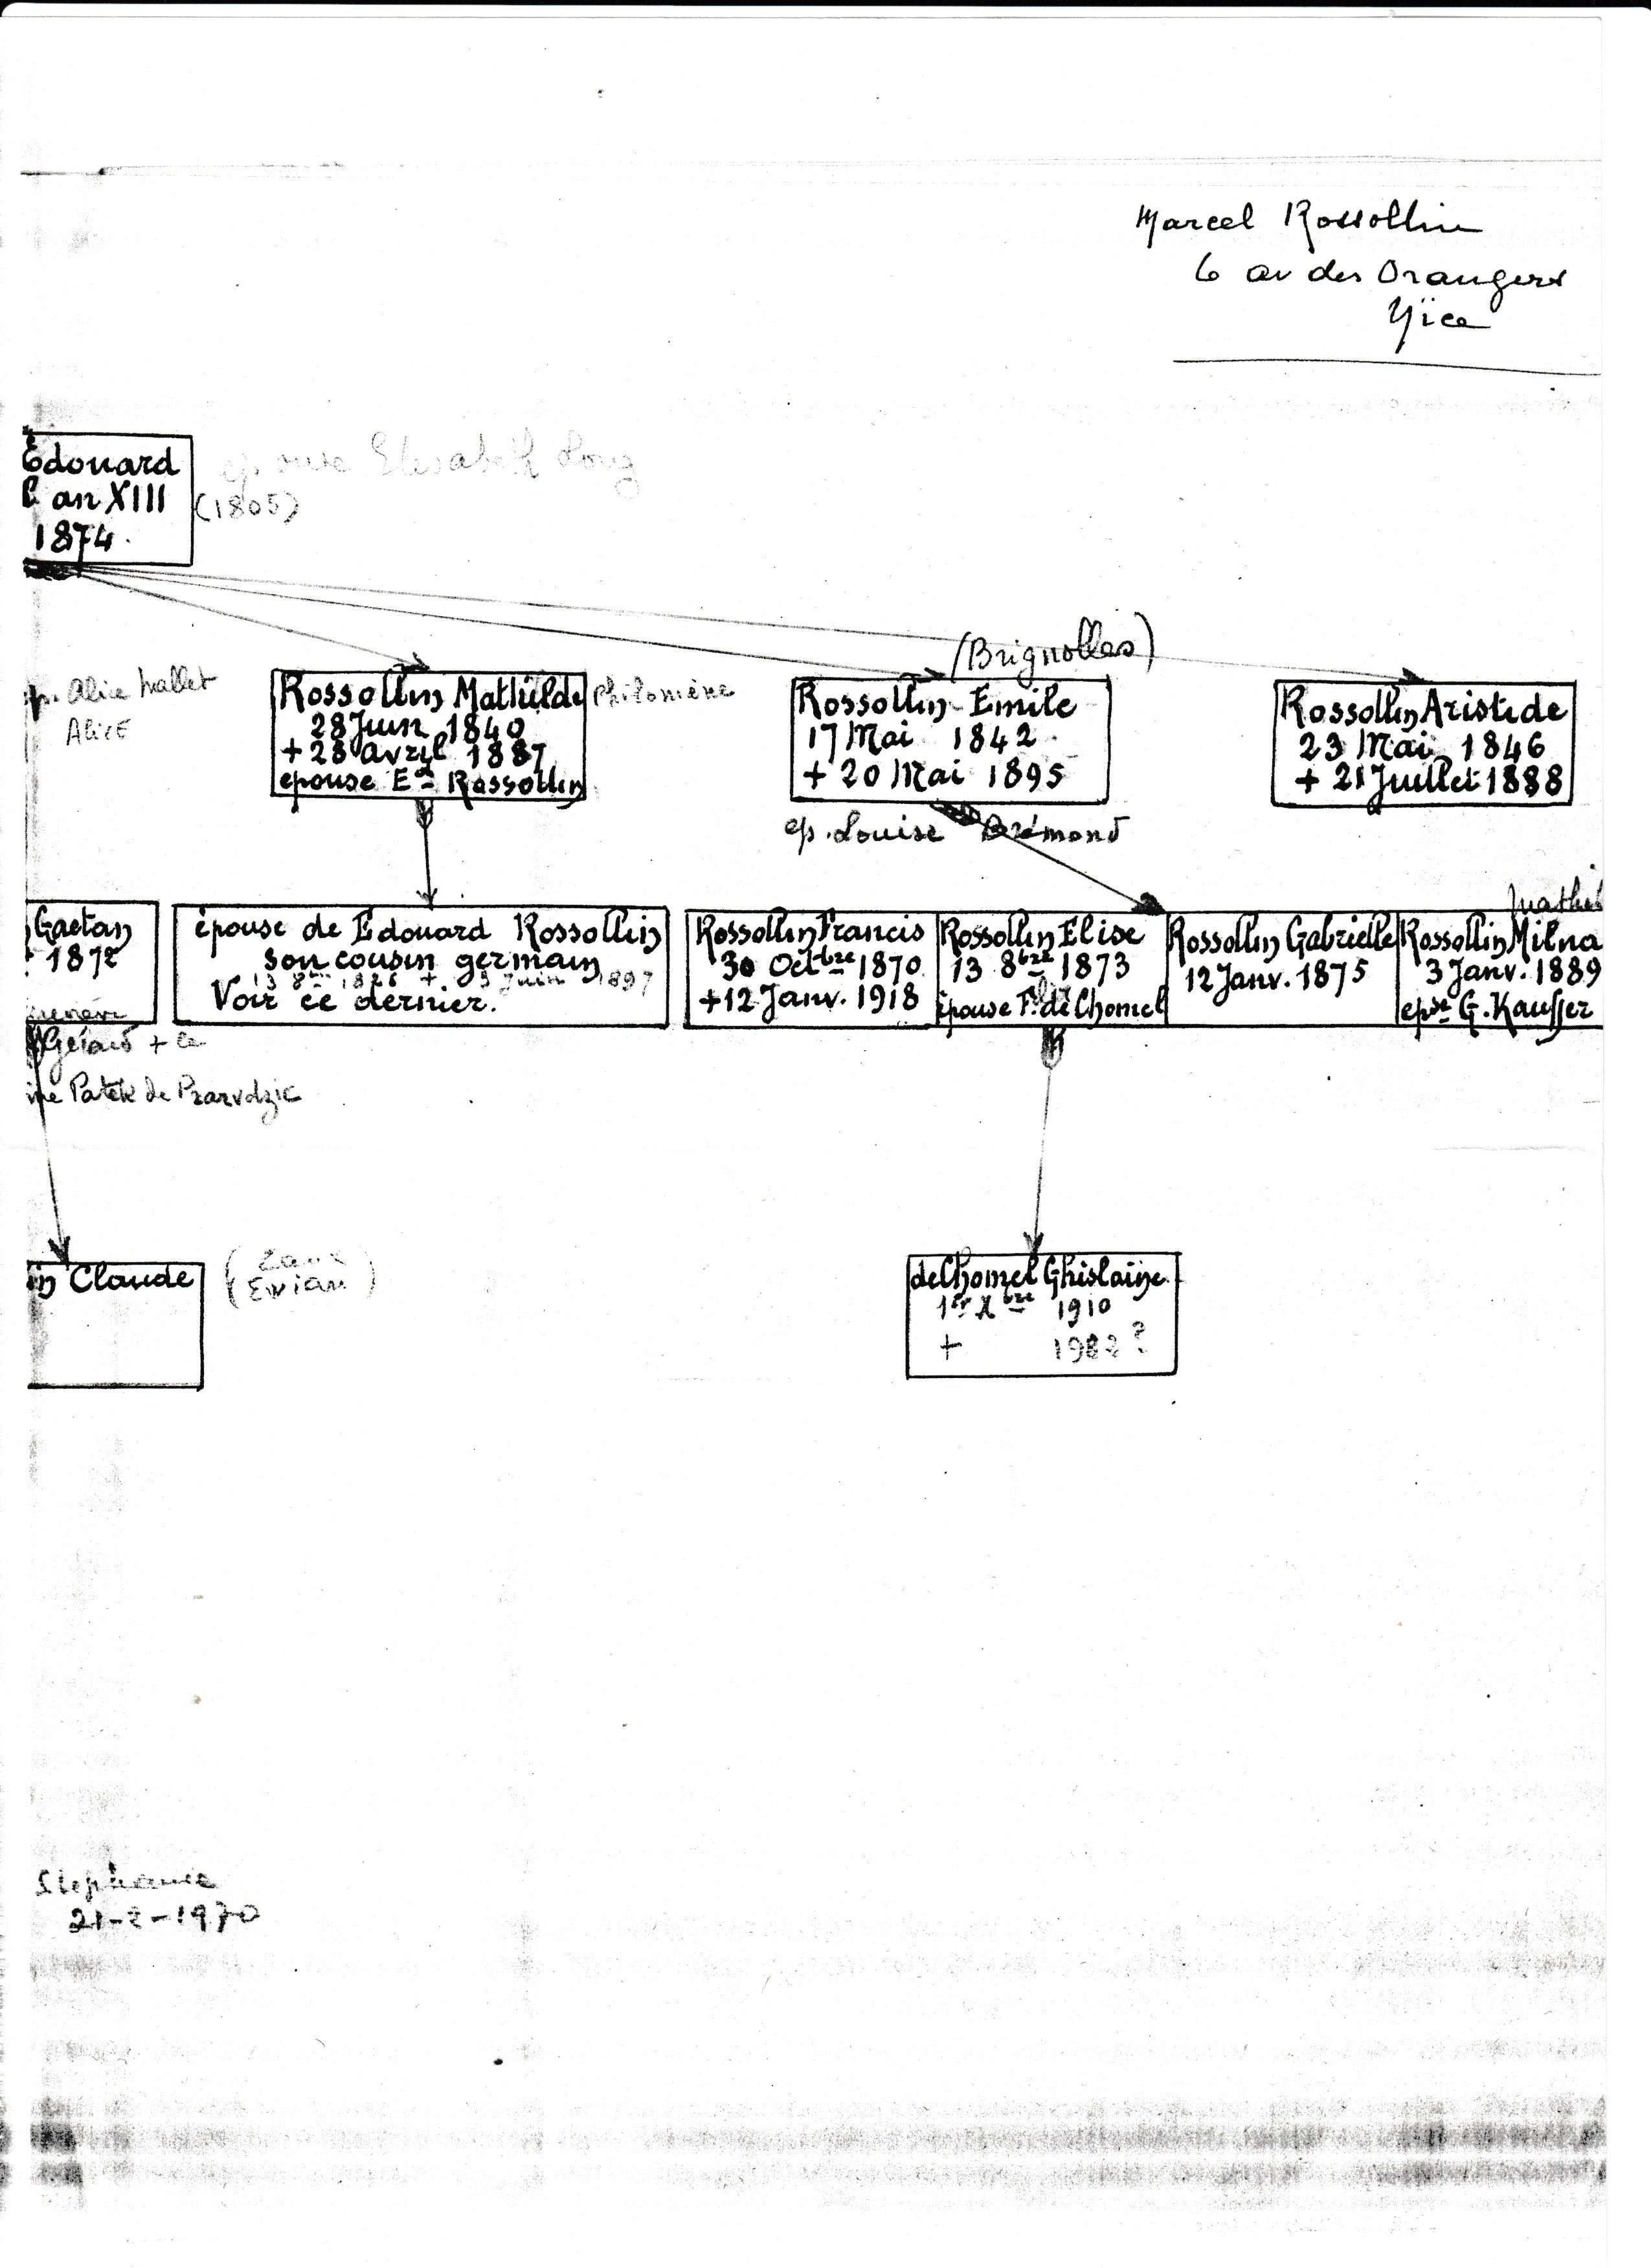 Marcel Rossollin
6 av des Orangers
Nice
Edouard
an XIII
1874.
épouse Elisabeth Long
(1805)
ep. Alice Mallet
Alice
Rossollin Mathilde
28 Juin 1840
+ 28 avril 1887
epouse Ed Rossollin
Philomène
(Brignolles)
Rossollin Emile
17 Mai 1842
+ 20 Mai 1895
ep. Louise Brémond
Rossollin Aristide
23 Mai 1846
+ 21 Juillet 1888
Gaetan
1872
Gérard + le
Patek de Prawdzic
épouse de Edouard Rossollin
son cousin germain
Juin 1897
Voir ce dernier.
Rossollin Francis
30 Octbre 1870
+ 12 Janv. 1918
Rossollin Elise
13 8bre 1873
épouse F. de Chomel
Rossollin Gabrielle
12 Janv. 1875
Rossollin Milna
3 Janv. 1889
epse G. Kauffer
in Claude
Evian)
de Chomel Ghislaine
1er Xbre 1910
+ 1982 ?
Stephanie
21-2-1970